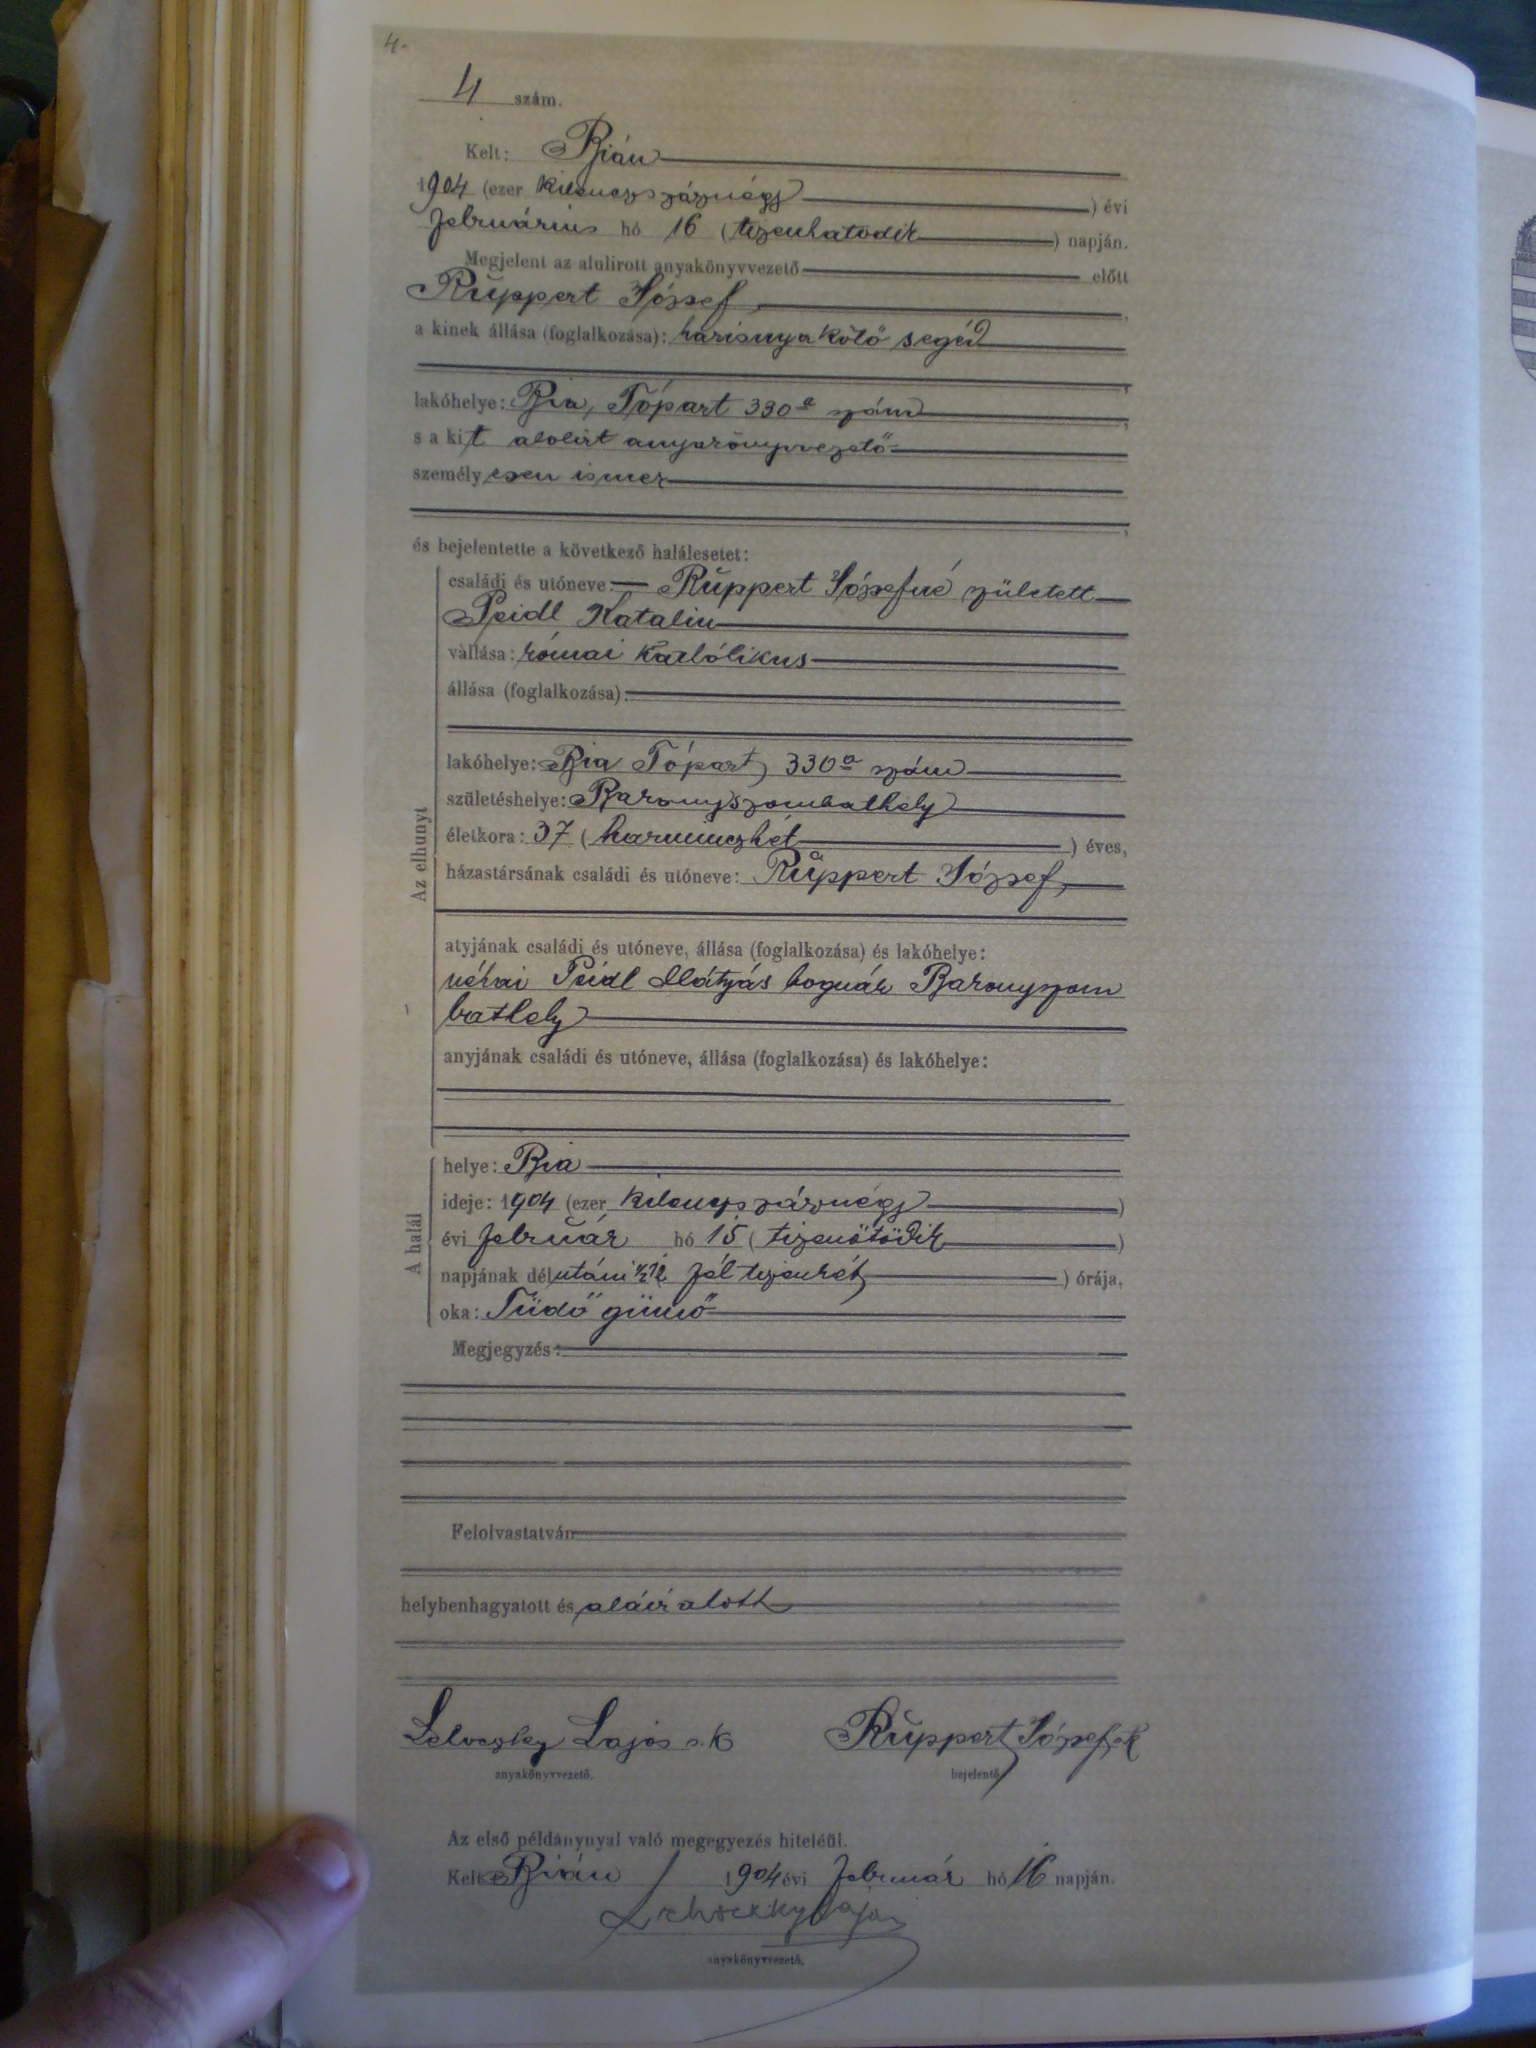 4.
4 szám.
Kelt: Bián
1904 (ezer kilenczszáznégy) évi
februárius hó 16 (tizenhatodik) napján.
Megjelent az alulirott anyakönyvvezető előtt
Ruppert József,
a kinek állása (foglalkozása): harisnyakötő segéd
lakóhelye: Bia, Tópart 330a szám
s a kit alolirt anyakönyvvezető
személyesen ismer
és bejelentette a következő halálesetet:
Az elhunyt
családi és utóneve: Ruppert Józsefné született
Peidl Katalin
vallása: római katholikus
állása (foglalkozása):
lakóhelye: Bia Tópart, 330a szám
születéshelye: Baronyszombathely
életkora: 37 (harminczhét) éves,
házastársának családi és utóneve: Ruppert József,
atyjának családi és utóneve, állása (foglalkozása) és lakóhelye:
néhai Peidl Mátyás bognár Baronyszom
bathely
anyjának családi és utóneve, állása (foglalkozása) és lakóhelye:
A halál
helye: Bia
ideje: 1904 (ezer kilenczszáznégy)
évi február hó 15 (tizenötödik)
napjának délutáni ½12 fél tizenkét) órája,
oka: Tüdő gümő
Megjegyzés:
Felolvastatván
helybenhagyatott és aláiratott
Lajos s.k
Ruppert József sk
anyakönyvvezető.
bejelentő
Az első példánynyal való megegyezés hiteléül.
Kelt Bián 1904 évi február hó 16 napján.
Lajos
anyakönyvvezető.